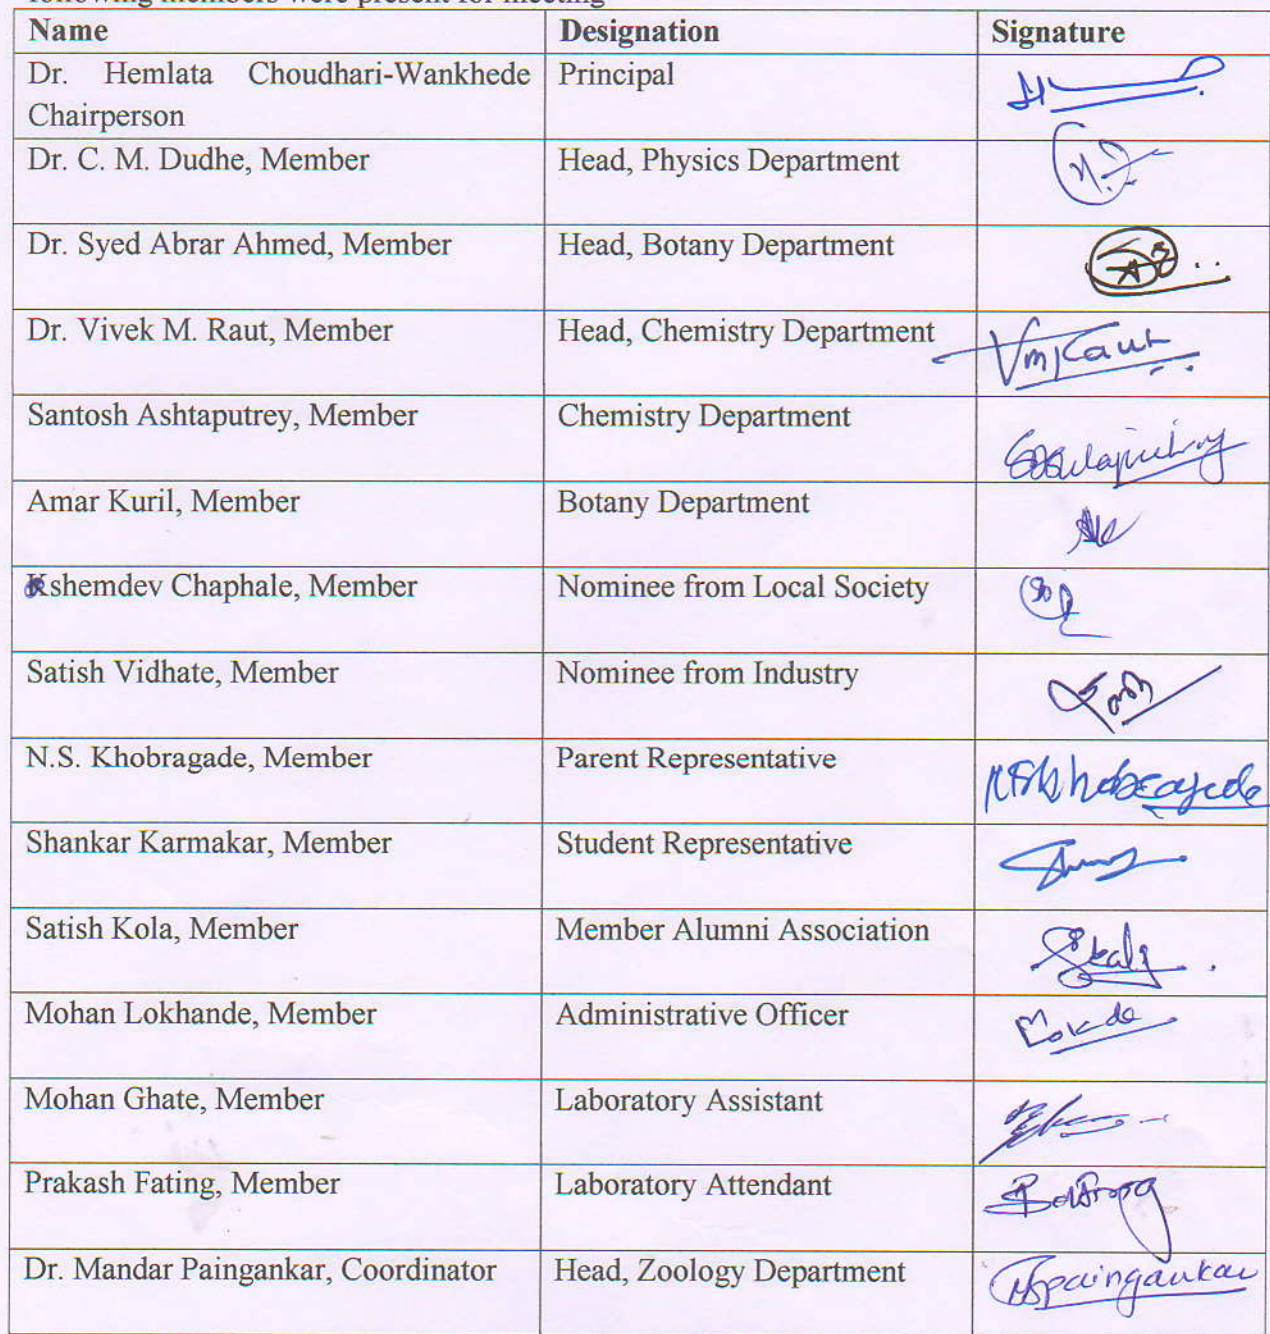 following members were present for meeting
Name Designation Signature
Dr. Hemlata Choudhari-Wankhede Principal
Chairperson
Dr. C. M. Dudhe, Member Head, Physics Department
Dr. Syed Abrar Ahmed, Member Head, Botany Department
Dr. Vivek M. Raut, Member Head, Chemistry Department VmRaut
Santosh Ashtaputrey, Member Chemistry Department
Amar Kuril, Member Botany Department
Kshemdev Chaphale, Member Nominee from Local Society
Satish Vidhate, Member Nominee from Industry
N.S. Khobragade, Member Parent Representative NSKhobragade
Shankar Karmakar, Member Student Representative
Satish Kola, Member Member Alumni Association
Mohan Lokhande, Member Administrative Officer
Mohan Ghate, Member Laboratory Assistant
Prakash Fating, Member Laboratory Attendant
Dr. Mandar Paingankar, Coordinator Head, Zoology Department MSpaingankar